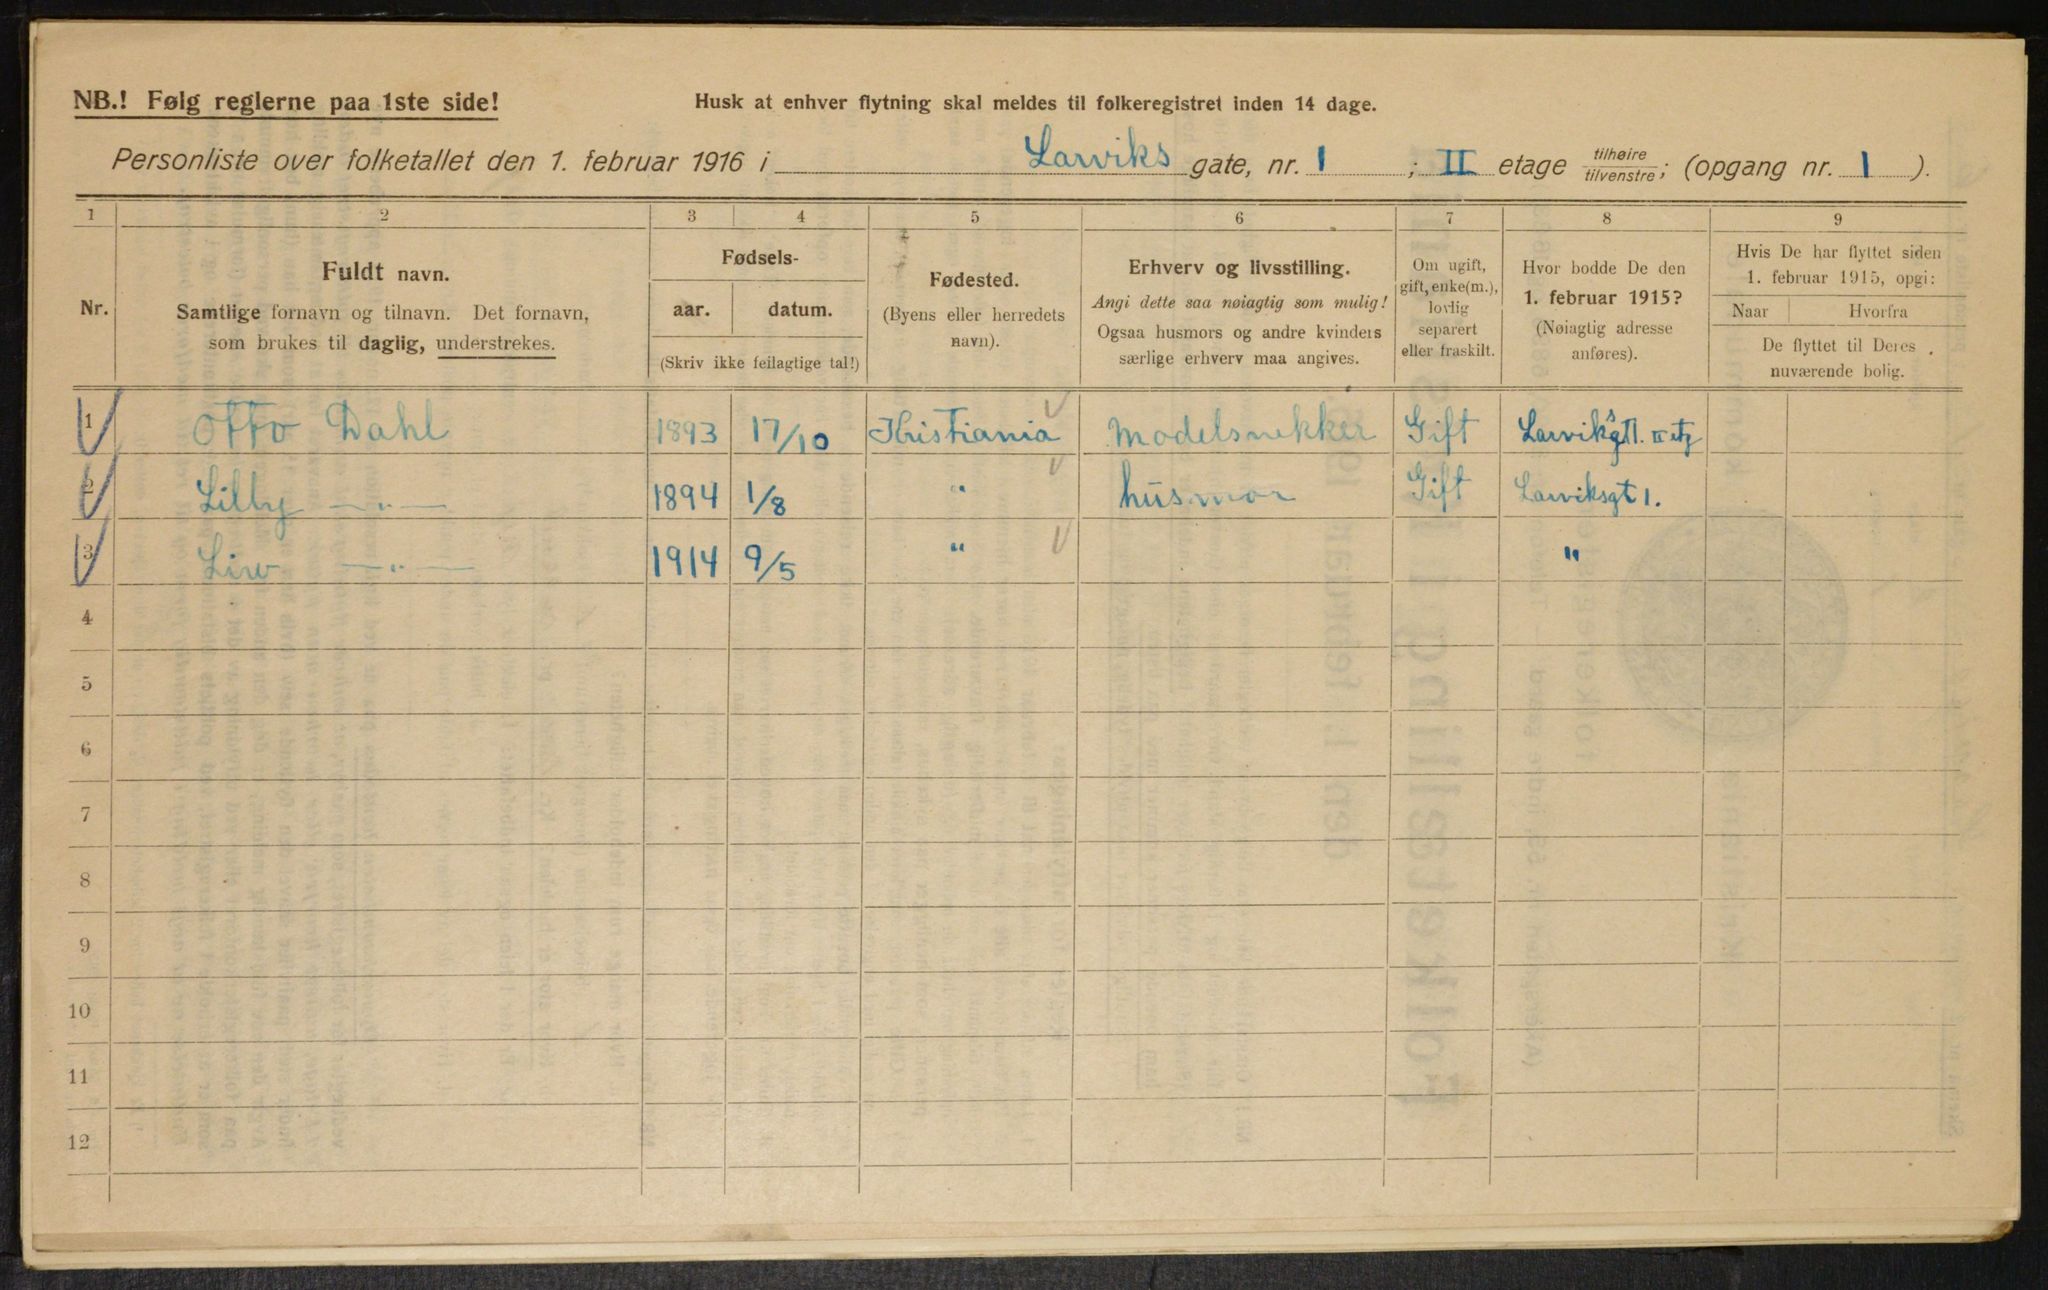 NB.! Følg reglerne paa 1ste side!
Husk at enhver flytning skal meldes til folkeregistret inden 14 dage.
Personliste over folketallet den 1. februar 1916 i Larviks gate, nr. 1 ; II etage tilhøire/tilvenstre; (opgang nr. 1 ).
1 2 3 4 5 6 7 8 9
Nr.
Fuldt navn.
Samtlige fornavn og tilnavn. Det fornavn,
som brukes til daglig, understrekes.
Fødsels-
aar. datum.
(Skriv ikke feilagtige tal!)
Fødested.
(Byens eller herredets
navn).
Erhverv og livsstilling.
Angi dette saa nøiagtig som mulig!
Ogsaa husmors og andre kvinders
særlige erhverv maa angives.
Om ugift,
gift, enke(m.),
lovlig
separert
eller fraskilt.
Hvor bodde De den
1. februar 1915?
(Nøiagtig adresse
anføres).
Hvis De har flyttet siden
1. februar 1915, opgi:
Naar Hvorfra
De flyttet til Deres
nuværende bolig.
1 Otto Dahl 1893 17/10 Kristiania Modelsnekker Gift Larviksgt 1. II etg
2 Lilly —"— 1894 1/8 " husmor Gift Larviksgt 1.
3 Liw —"— 1914 9/5 " "
4
5
6
7
8
9
10
11
12